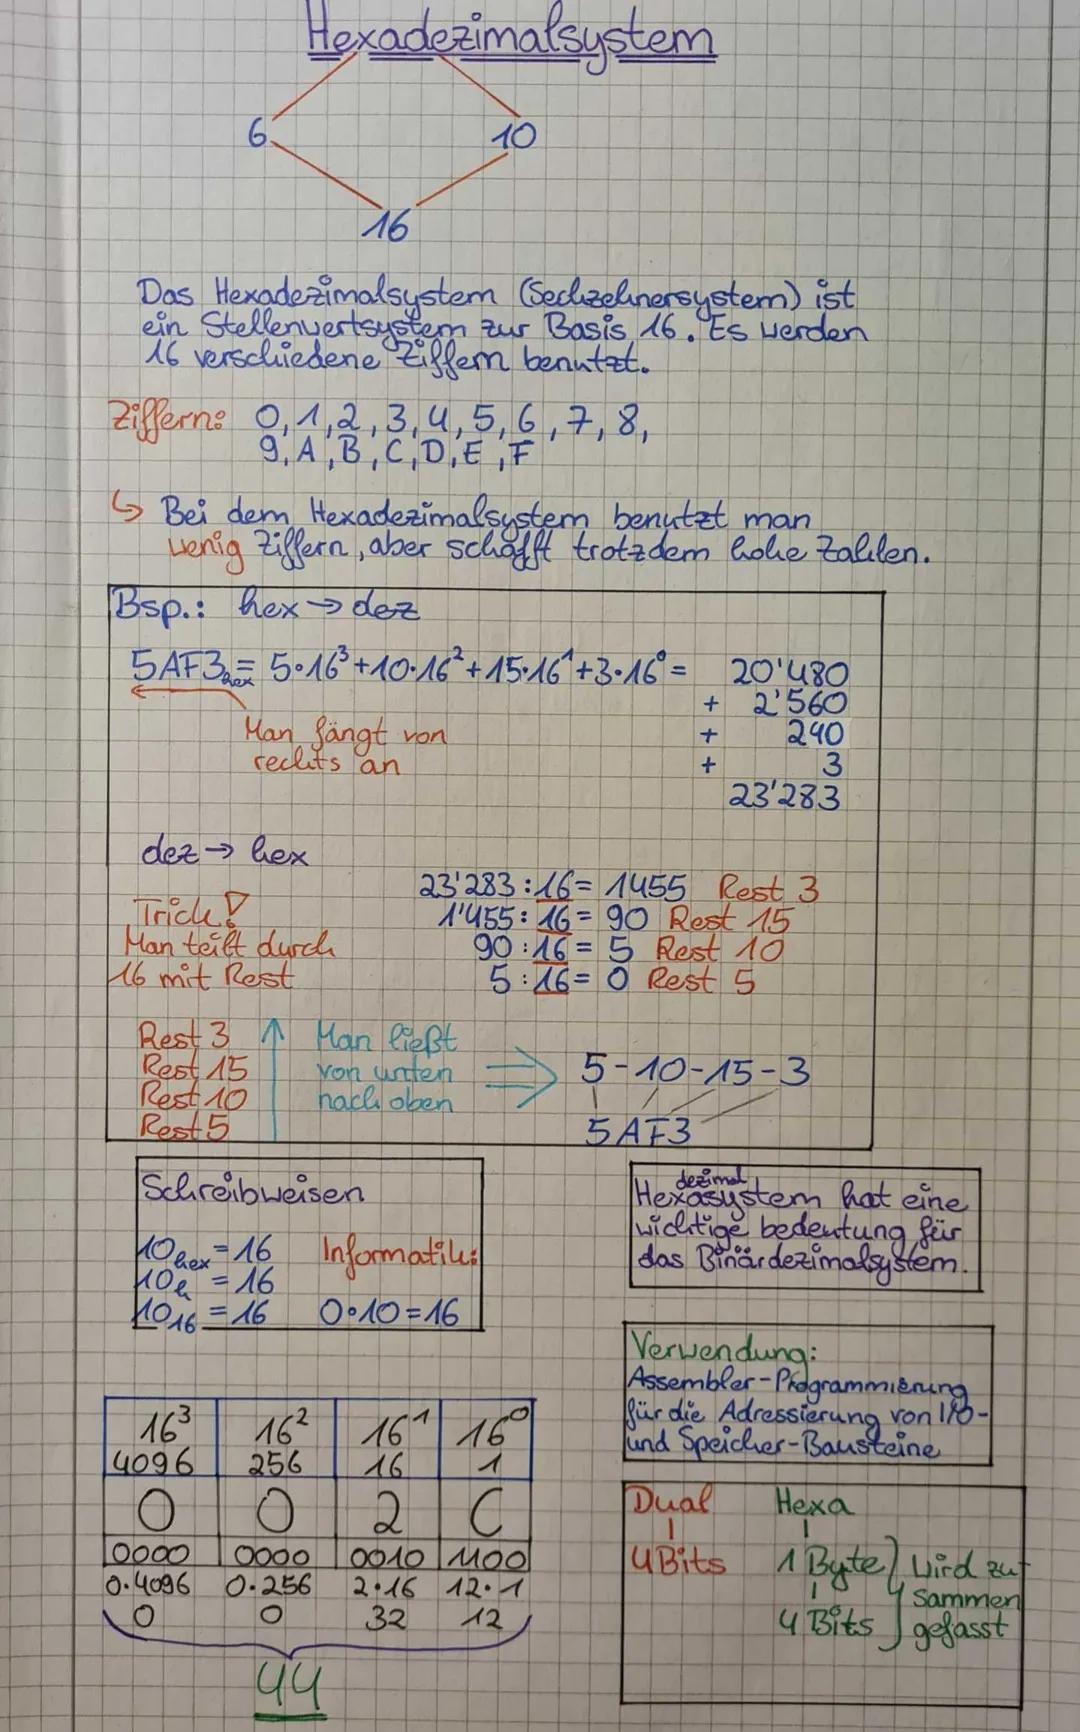 Hexadezimalsystem
6 10
16
Das Hexadezimalsystem (Sechzehnersystem) ist
ein Stellenwertsystem zur Basis 16. Es werden
16 verschiedene Ziffern benutzt.
Ziffern: 0, 1, 2, 3, 4, 5, 6, 7, 8,
9, A, B, C, D, E, F
↳ Bei dem Hexadezimalsystem benutzt man
wenig Ziffern, aber schafft trotzdem hohe Zahlen.
Bsp.: hex → dez
5AF3hex = 5·16³+10·16²+15·16¹+3·16⁰ = 20'480
+ 2'560
Man fängt von + 240
rechts an + 3
23'283
dez → hex
23'283 : 16 = 1455 Rest 3
Trick! 1'455 : 16 = 90 Rest 15
Man teilt durch 90 : 16 = 5 Rest 10
16 mit Rest 5 : 16 = 0 Rest 5
Rest 3 ↑ Man ließt
Rest 15 von unten ⇒ 5-10-15-3
Rest 10 nach oben
Rest 5 5AF3
Schreibweisen
10hex = 16 Informatik:
10h = 16
10₁₆ = 16 0·10=16
dezimal
Hexasystem hat eine
wichtige bedeutung für
das Binärdezimalsystem.
Verwendung:
Assembler-Programmierung
für die Adressierung von I/O-
und Speicher-Bausteine
16³ 16² 16¹ 16⁰
4096 256 16 1
0 0 2 C
0000 0000 0010 1100
0·4096 0·256 2·16 12·1
0 0 32 12
44
Dual Hexa
4Bits 1 Byte } wird zu
sammen
4 Bits gefasst